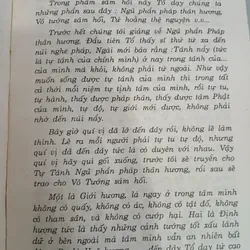 Trong phẩm sám hối này Tổ dạy chúng ta
những phần sau đây : Ngũ phần pháp thân hương,
Vô tướng sám hối, Tứ hoằng thệ nguyện v.v...
Trước hết chúng tôi giảng về Ngũ phần Pháp
thân hương. Đầu tiên Tổ thấy sĩ thứ từ xa đến
núi nghe pháp, Ngài mới bảo rằng : Tánh này (tức
là tự tánh của chính mình) ở nay trong tánh của...
của mình mà khởi, không phải từ ngoài. Như vậy
muốn sống được tự tánh của mình thì trong tất
cả thời mỗi niệm tự tịnh tâm của mình, rồi tự tu,
tự hành, thấy được pháp thân, thấy được tâm Phật
của mình, tự độ, tự giới mới được, không phải
nhờ đến núi này.
Bây giờ quí vị đã lỡ đến đây rồi, không lẽ làm
thinh. Lẽ ra mỗi người phải tự tu tự hành, nhưng
quí vị đã đến đây tức là có duyên với nhau. Vậy
quí vị hãy quì gối xuống, trước tôi sẽ truyền cho
Tự Tánh Ngũ phần pháp thân hương, rồi sau sẽ
trao cho Vô Tướng sám hối.
Một là Giới hương, là ngay ở trong tâm mình
không có quấy, không có ác, không có tật đố, không
có tham sân, và không có cướp hại. Hai là Định
hương tức là thấy những cảnh tướng tốt xấu lành
dữ ở bên ngoài mà tâm mình vẫn không bị bất